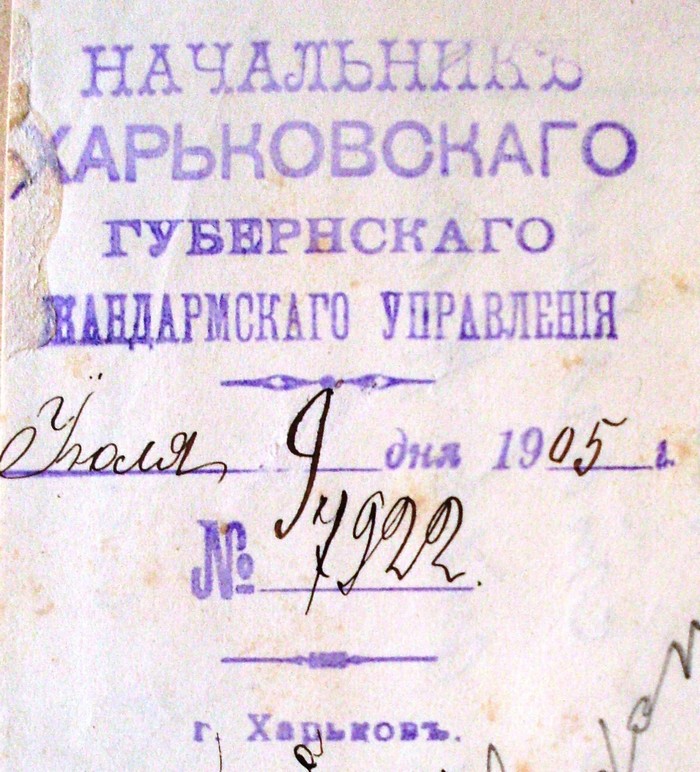 НАЧАЛЬНИКЪ
ХАРЬКОВСКАГО
ГУБЕРНСКАГО
ЖАНДАРМСКАГО УПРАВЛЕНІЯ
Іюля 9 дня 1905 г.
№ 7922.
г. Харьковъ.